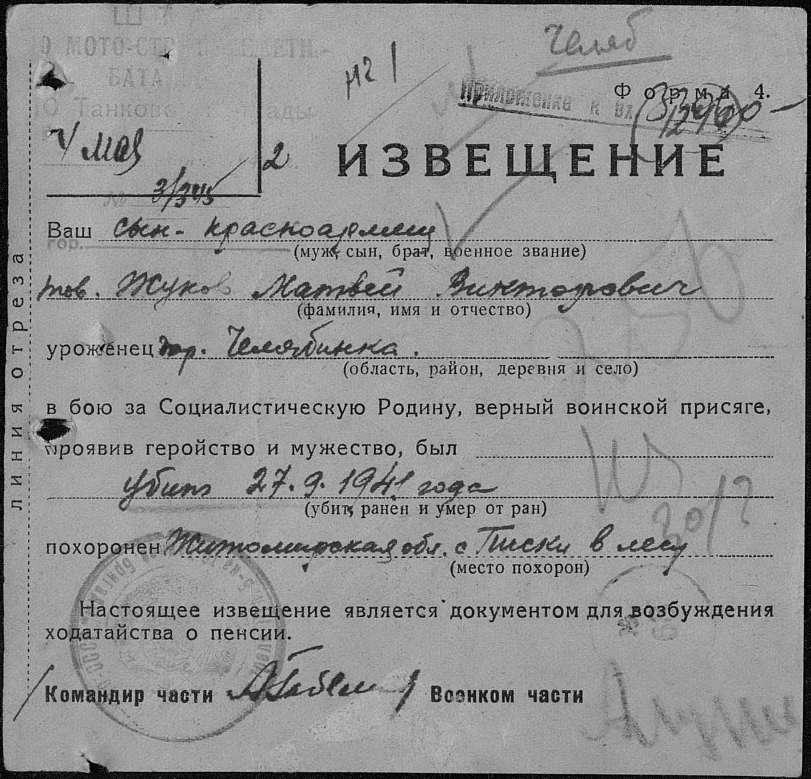 Челяб
№ 1
Форма 4.
Приложение к вх
4 мая 2
№ 3/345
ИЗВЕЩЕНИЕ
Ваш сын - красноармеец
гор.
(муж, сын, брат, военное звание)
тов. Жуков Матвей Викторович
(фамилия, имя и отчество)
уроженец гор. Челябинка.
(область, район, деревня и село)
в бою за Социалистическую Родину, верный воинской присяге,
проявив геройство и мужество, был
убит 27.9.1941 года
(убит, ранен и умер от ран)
похоронен Житомирская обл. с Писки в лесу
(место похорон)
Настоящее извещение является документом для возбуждения
ходатайства о пенсии.
Командир части Военком части
линия отреза